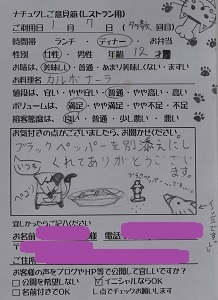 ナチュクレご意見箱(レストラン用)
ご利用日 1月7日(多数人)
時間帯 ランチ・ディナー・お弁当
性別 女性・男性 年齢 12才
お味は 美味しい・普通・あまり美味しくない・まずい
お料理名 カルボナーラ
値段は、安い・やや安い・普通・やや高い・高い
ボリュームは 満足・やや満足・やや不足・不足
接客態度は、良い・普通・少し悪い・悪い
お気付きの点がございましたら、お聞かせください。
ブラックペッパーを別添えにし
てくれてありがとうござい
ます。
いつも
ペコリ
ブラックペッパー
宜しかったらご記入ください
お名前 様 電話
ご住所
お客様の声をブログやHP等で公開して宜しいですか?
公開を希望しない イニシャルならOK
名前付きでOK レ点でチェックお願いします